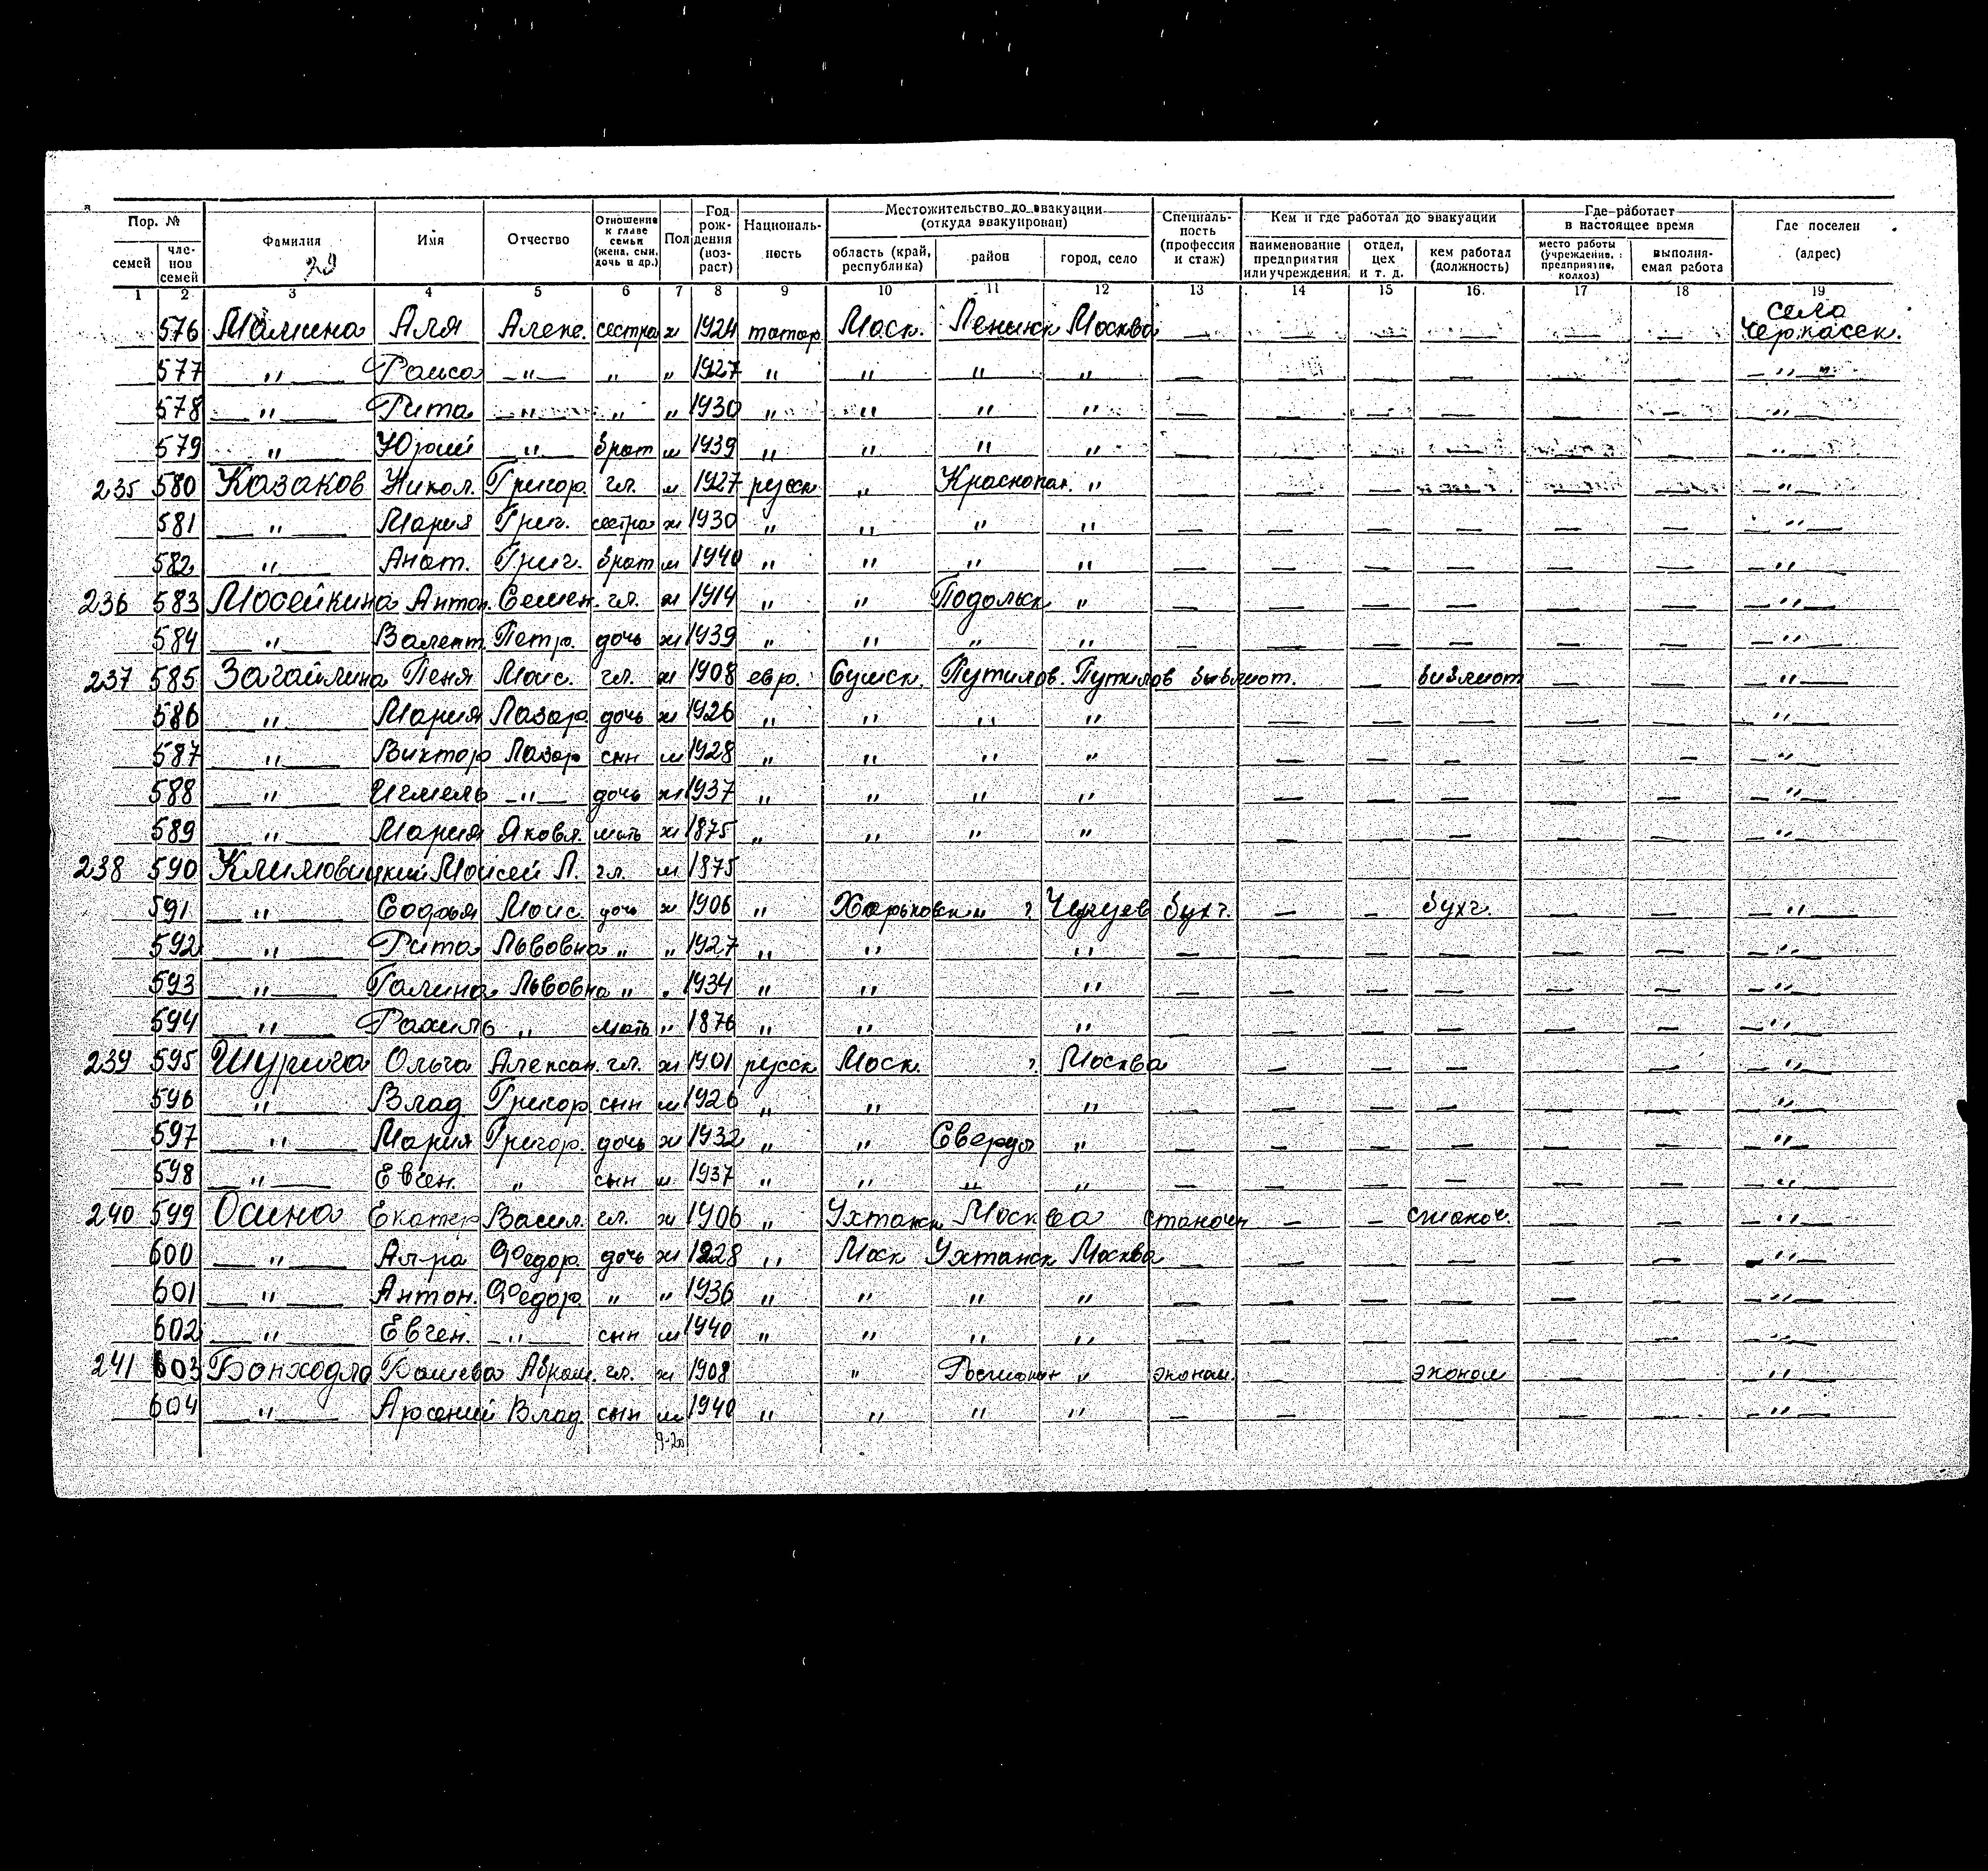 Пор. № Фамилия Имя Отчество Отношение к главе семьи (жена, сын, дочь и др.) Пол Год рождения (возраст) Националь-ность Местожительство до эвакуации (откуда эвакуирован) Специаль-ность (профессия и стаж) Кем и где работал до эвакуации Где работает в настоящее время Где поселен (адрес)
семей чле-нов семей область (край, республика) район город, село наименование предприятия или учреждения отдел, цех и т. д. кем работал (должность) место работы (учреждение, предприятие, колхоз) выполня-емая работа
29
1 2 3 4 5 6 7 8 9 10 11 12 13 14 15 16 17 18 19
576 Мамина Аля Алекс. сестра ж 1924 татар Моск. Ленинск Москва — — — — — — село Черкасск.
577 — " — Раиса — " — " " 1927 " " " " — — — — — — — " —
578 — " — Рита — " — " " 1930 " " " " — — — — — — — " —
579 — " — Юрий — " — брат м 1939 " " " " — — — — — — — " —
235 580 Казаков Никол. Григор. гл. м 1927 русск " Краснопол. " — — — — — — — " —
581 — " — Мария Григ. сестра ж 1930 " " " " — — — — — — — " —
582 — " — Анат. Григ. брат м 1940 " " " " — — — — — — — " —
236 583 Мосейкина Антон. Семен. гл. ж 1914 " " Подольск " — — — — — — — " —
584 — " — Валент. Петр. дочь ж 1939 " " " " — — — — — — — " —
237 585 Загайлина Геня Моис. гл. ж 1908 евр. Сумск. Путилов. Путилов библиот. — библиот — — — " —
586 — " — Мария Лазар дочь ж 1926 " " " " — — — — — — " —
587 — " — Виктор Лазар сын м 1928 " " " " — — — — — — " —
588 — " — — " — дочь ж 1937 " " " " — — — — — — " —
589 — " — Мария Яковл. мать ж 1875 " " " " — — — — — — " —
238 590 Климовицкий Моисей Л. гл. м 1875
591 — " — Софья Моис. дочь ж 1906 " Харьковск " ? Чугуев бухг. — — бухг. — — — " —
592 — " — Рита Львовна " " 1927 " " " — — — — — — — " —
593 — " — Галина Львовна " " 1934 " " " — — — — — — — " —
594 — " — Рахиль " мать " 1876 " " " — — — — — — — " —
239 595 Ольга Алексан. гл. ж 1901 русск Моск. ? Москва — — — — — — — " —
596 — " — Влад Григор сын м 1926 " " " — — — — — — — " —
597 — " — Мария Григор. дочь ж 1932 " " Свердл " — — — — — — — " —
598 — " — Евген. " сын м 1937 " " " " — — — — — — — " —
240 599 Осина Екатер Васил. гл. ж 1906 " Ухтанск Москва станочн — — станоч. — — — " —
600 — " — Ал-ра Федор. дочь ж 1928 " Моск Ухтанск Москва — — — — — — — " —
601 — " — Антон. Федор. " " 1936 " " " " — — — — — — — " —
602 — " — Евген. — " — сын м 1940 " " " " — — — — — — — " —
241 603 Абрам. гл. ж 1908 " " эконом. — эконом — — — " —
604 — " — Арсений Влад. сын м 1940 " " " " — — — — — — " —
9-20